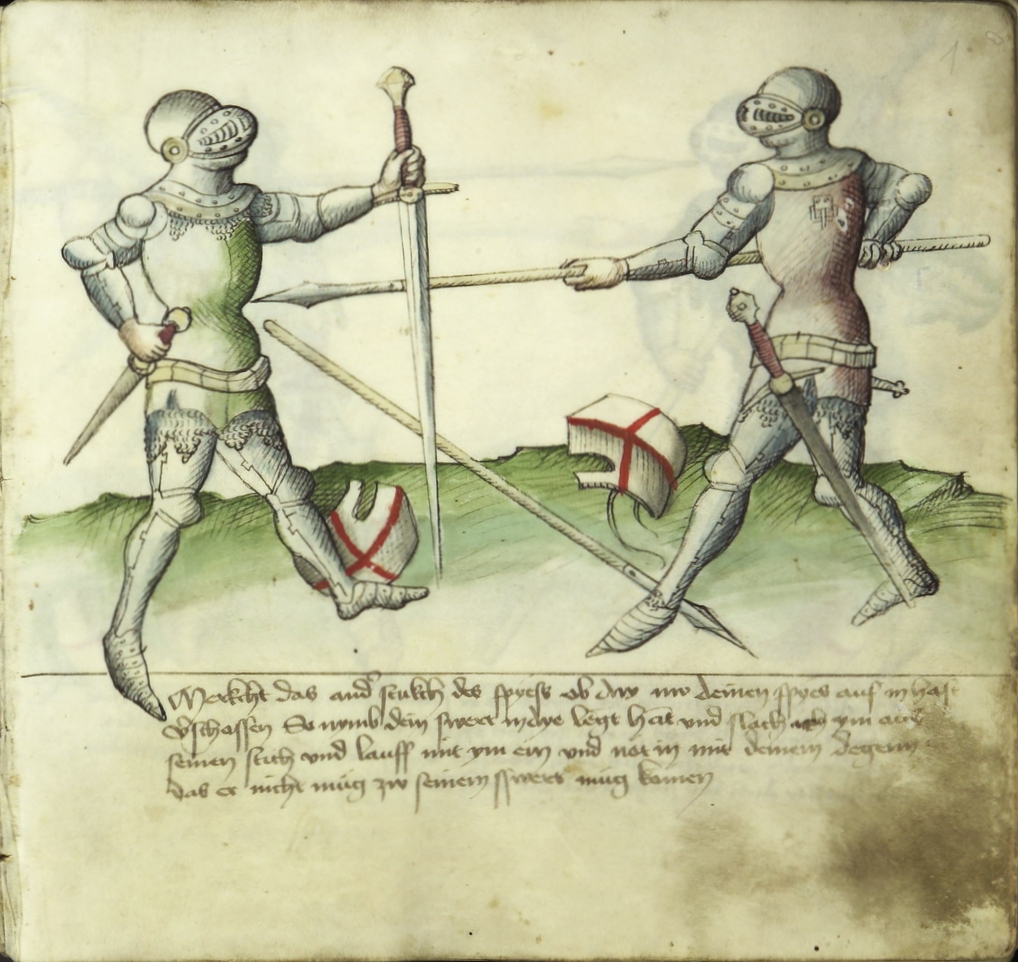 1
Merckht das and stukch des spyess ob dw nw deinen spyes auf in hast
vschossen So nymb dein swert in dye lengk hant und slach ym aus
seinen stich und lauff mit ym ein und not in mit deinem degenn
das er nicht müg zw seinem swert müg komen